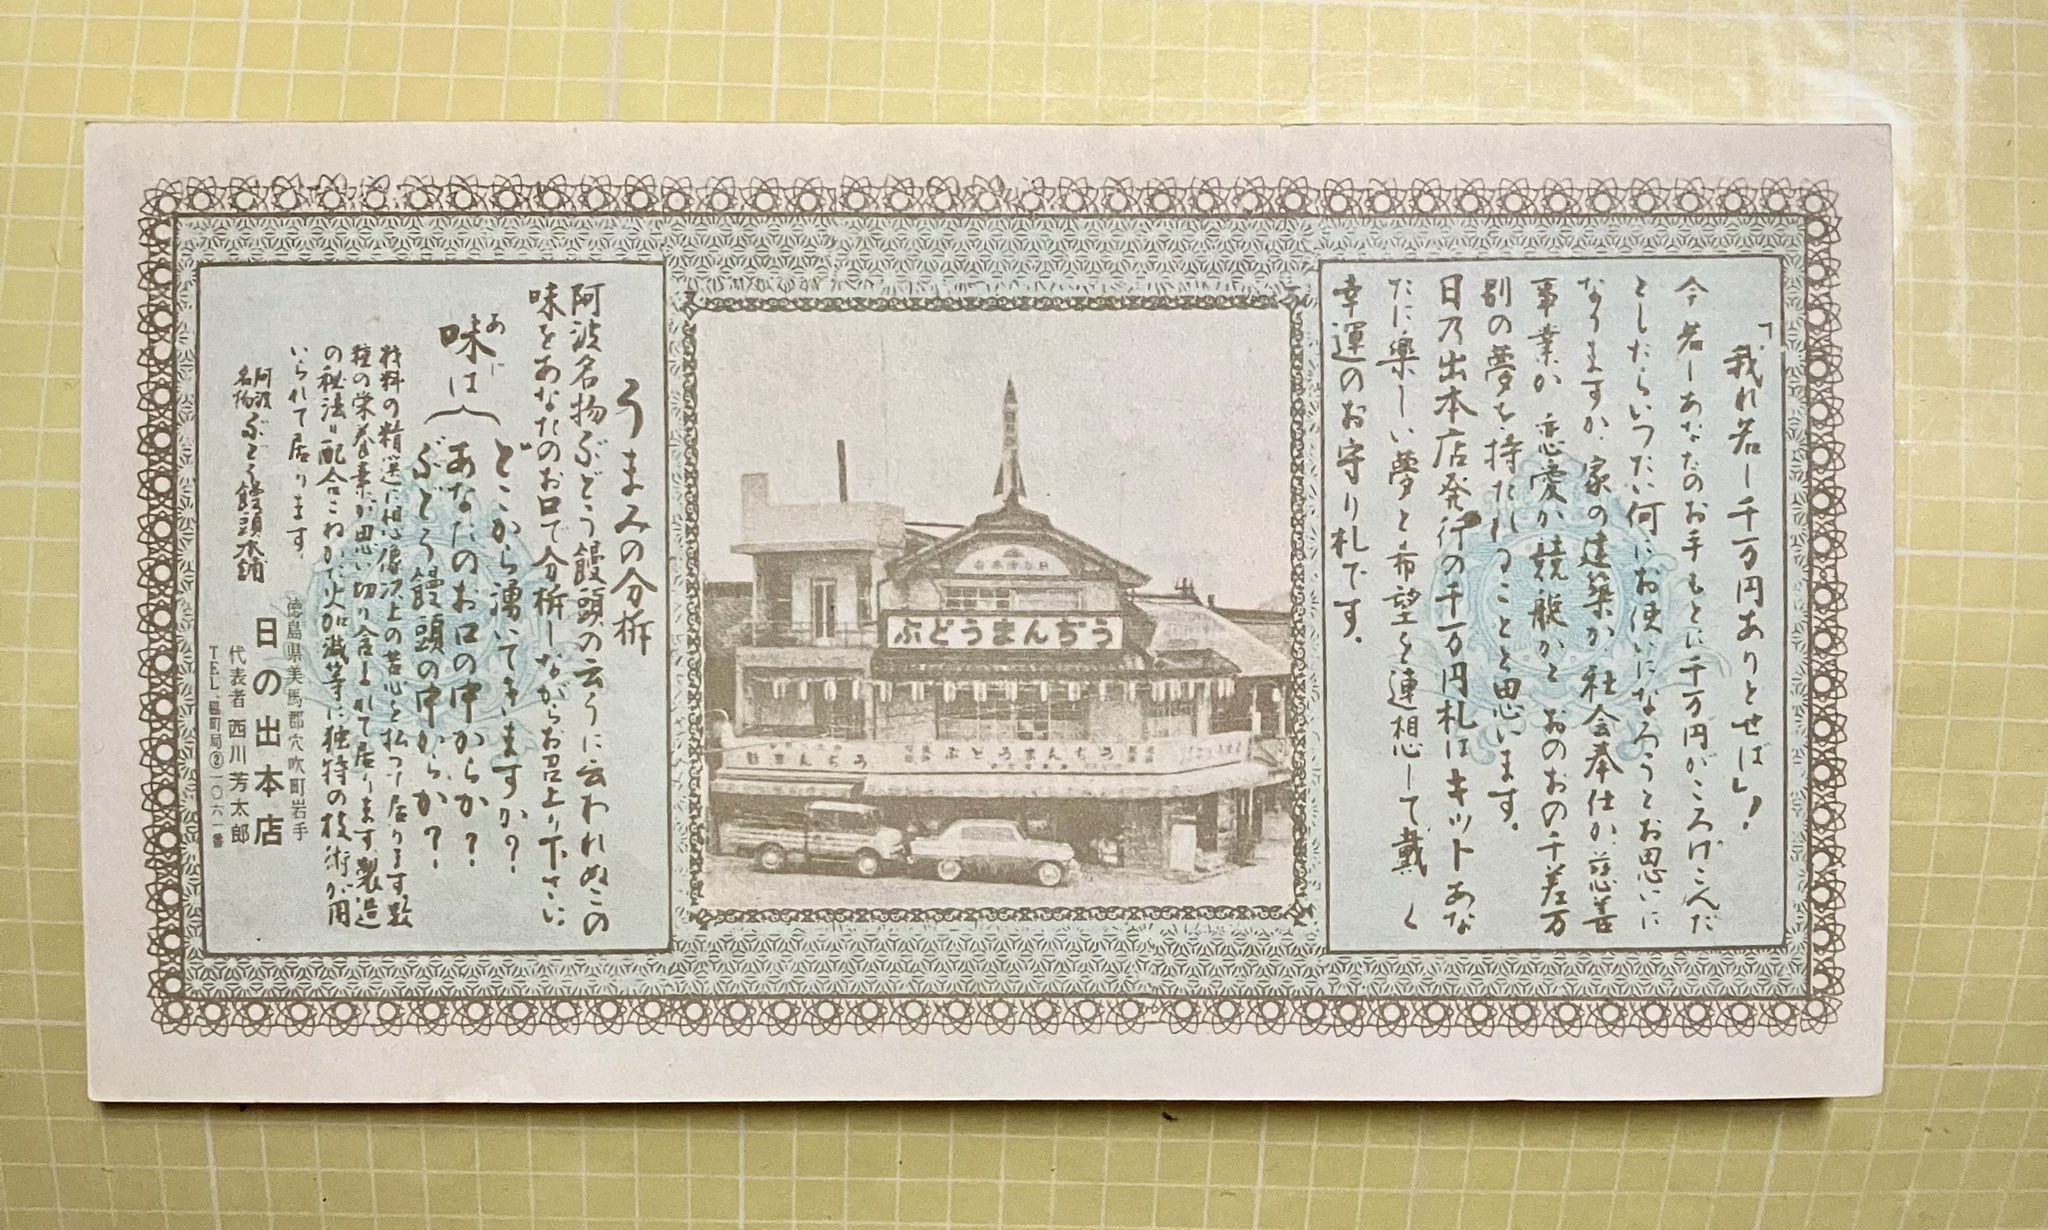 「我れ若し千万円ありとせば」！
今若しあなたのお手もとに千万円がころげこんだ
としたらいつたい何にお使いになろうとお思いに
なりますか、家の建築か社会奉仕か慈善
事業か恋愛か競艇かとおのおの千差万
別の夢を持たれることと思います。
日乃出本店発行の千万円札はキットあな
たに楽しい夢と希望を連想して戴く
幸運のお守り札です。
ぶどうまんぢう
ぶどうまんぢう
うまみの分析
阿波名物ぶどう饅頭の云うに云われぬこの
味をあなたのお口で分析しながらお召上り下さい
味は
あじ
どこから湧いてきますか？
あなたのお口の中からか？
ぶどう饅頭の中からか？
材料の精選に想像以上の苦心を払つて居ります数
種の栄養素が思い切り含まれて居ります製造
の秘法は配合こねかた火加減等に独特の技術が用
いられて居ります。
阿波名物ぶどう饅頭本舗
徳島県美馬郡穴吹町岩手
日の出本店
代表者 西川芳太郎
TEL 町局②一〇六一番